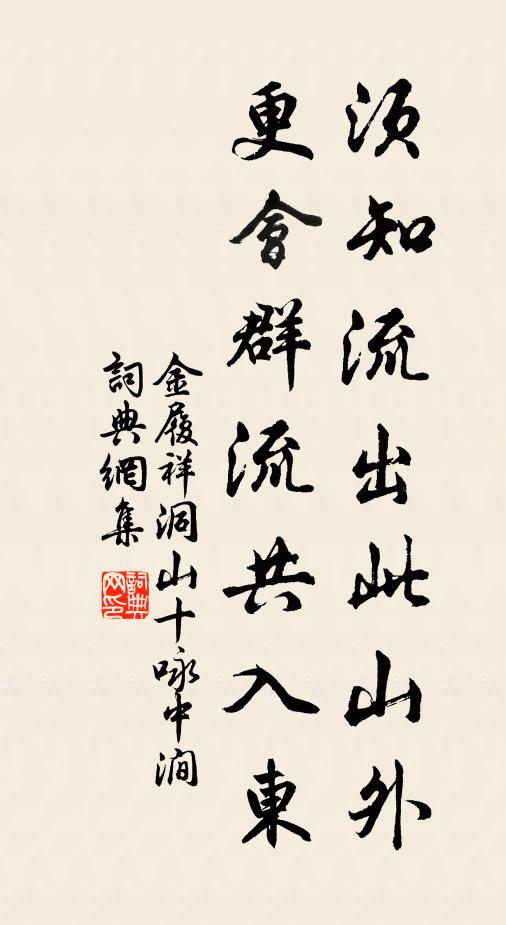 須知流出此山外
更會群流共入東
金履祥洞山十咏中澗
詞典網集
詞典網印